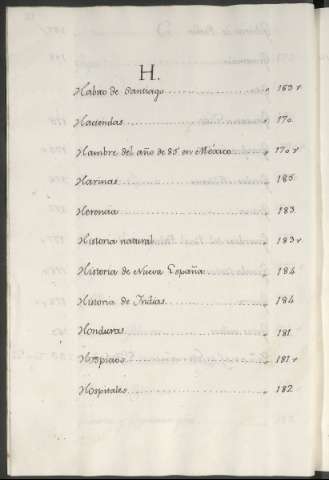 H.
Habito de Santiago 163v
Haciendas 170
Hambre del año de 85 en México 170v
Harinas 185
Herencia 183
Historia natural 183v
Historia de Nueva España 184
Historia de Indias 184
Honduras 181
Hospicio 181v
Hospitales 182